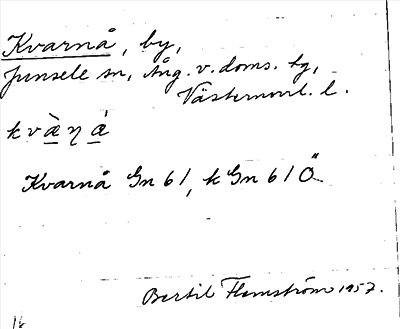 Kvarnå, by,
Junsele sn, Ång. v. doms. tg,
Västernorrl. l.
k v à̱ η á̱
Kvarnå Gn 61, k Gn 61 Ö
Bertil Flemström 1957.